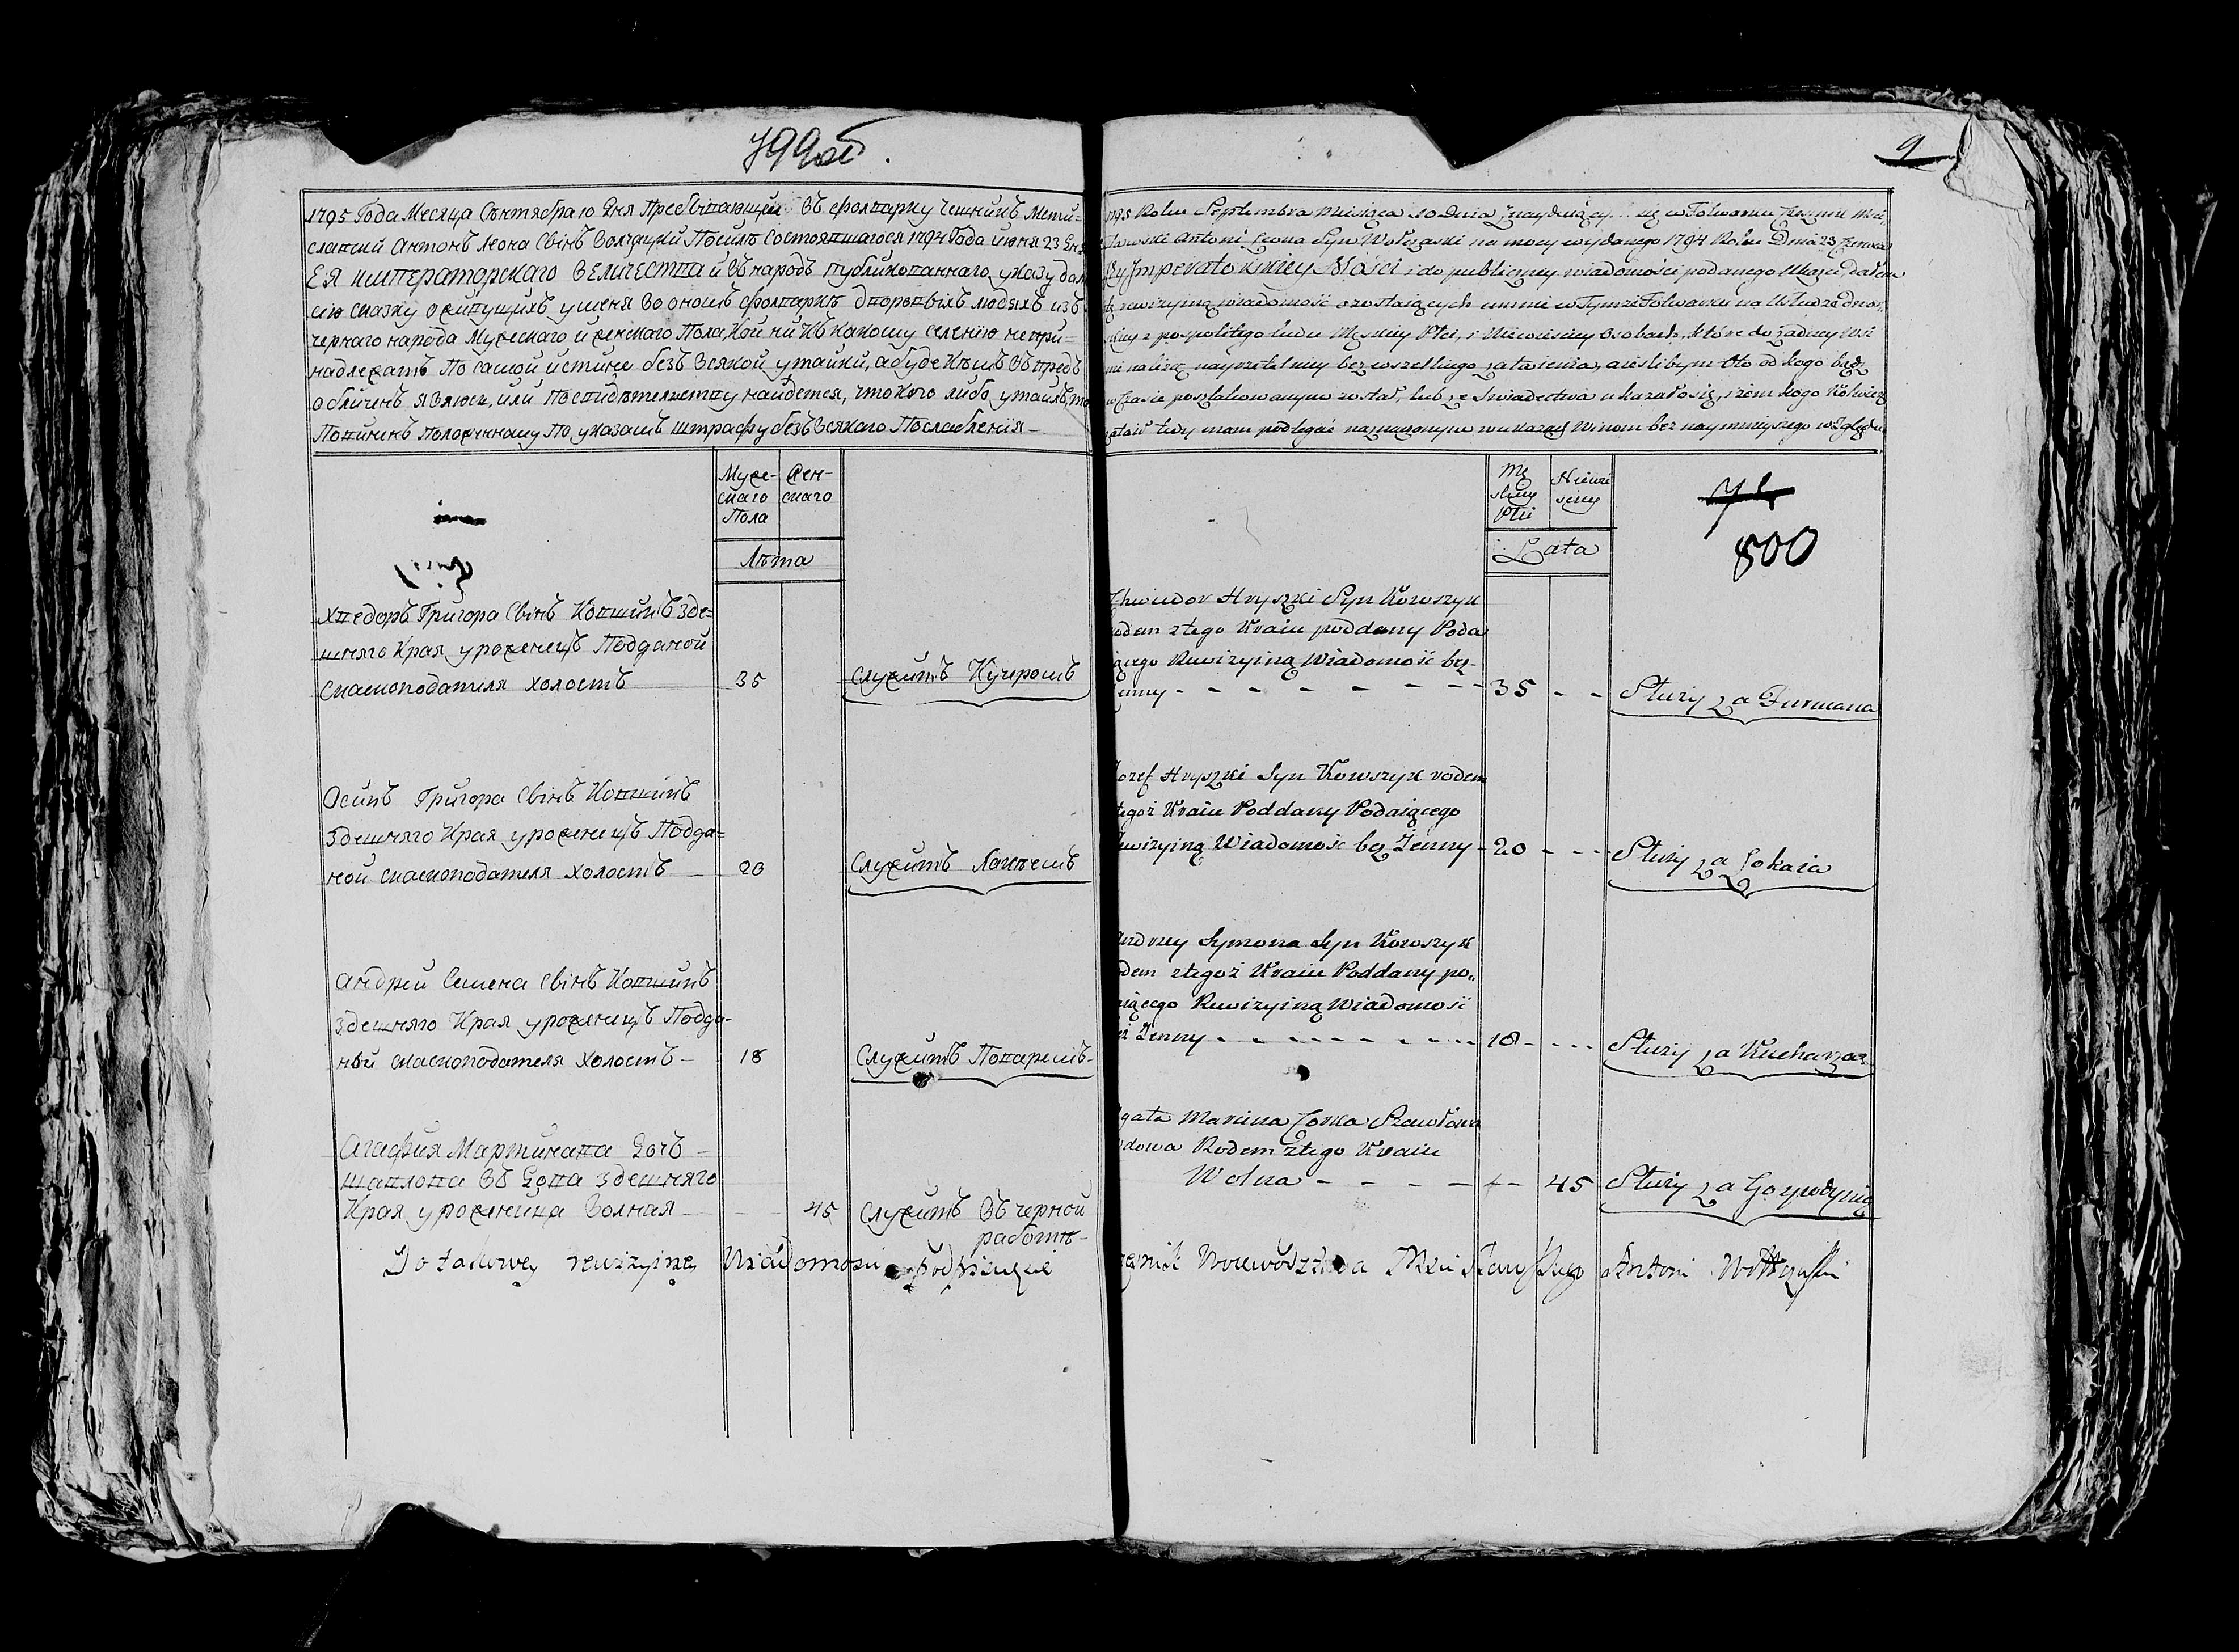 799об.
1795 Года Месяца Сѣнтября 10 Дня Пребывающей въ фолварку Чешникъ Мсти=
славский Антонъ Леона Сынъ Волчацкй По силѣ Состоявшагося 1794 Года июня 23 Дня
ЕЯ императорскаго Величества и въ народъ публикованнаго указу дал
сию сказку о живущихъ у меня во ономъ фолваркѣ дворовыхъ людяхъ изъ
чернаго народа Мужескаго и женскаго Пола, Кои ни Къ какому селению непри=
надлежатъ По самой истине безъ всякой утайки, а буде Кѣмъ въпредь
обличенъ явлюсь, или По свидѣтелству найдется, что Кого либо утаилъ, то
Повиненъ Положенному По указамъ штрафу безъ всякаго Послабления
Муже-
скаго
Пола
Жен-
скаго
Лѣта
Хведоръ Григора Сынъ Ковшикъ Зде=
шняго Края уроженецъ Подданой
сказкоподателя холостъ 35 Служитъ Кучромъ
Осипъ Григора Сынъ Ковшикъ
Здешняго Края уроженецъ Подда=
ной сказкоподателя холостъ — 20 Служитъ Лакѣемъ
Андрей Семена Сынъ Ковшикъ
Здешняго Края уроженецъ Подда-
ный сказкоподателя холостъ — 18 Служитъ Поваремъ
Агафия Мартинава Дочь
Шавлова Вдова здешняго
Края уроженица Волная 45 Служитъ Въ черной
работѣ
Do takowey rewizyiney Wiadomosci podpisuie
9
1795 Roku Septembra Miesiąca 10 Dnia znayduiący się w Folwarku Czesznik Mści
sławski Antoni Leona Syn Wołczacki na mocy wydanego 1794 Roku Dnia 23 Czerwca
Jey Imperatorskiey Mości i do publiczney wiadomości podanego Ukazu dałem
tę rewizyiną wiadomość o zostaiących u mnie w Tymże Folwarku na Usłudze dwor,
skiey z pospolitego ludu Męskiey Płci, i Niewiesciey Osobach, które do żadney Wsi
nie należą nayrzetelniey bez wszelkiego zataienia, a iesli bym oto od kogo bądź
w Czasie poszlakowanym został, lub ze Świadectwa ukazało się, iżem kogo kolwiek
zataił tedy mam podlegać naznaczonym w ukazach Winom bez naymnieyszego względu
Mę
skiey
Płci
Niewie
sciey
Lata
74
800
Chwiedor Hryszki Syn Kowszyk
rodem ztego Kraiu poddany Poda
iącego Rewizyiną Wiadomość bez
Zenny - - - - - - - 35 - - Służy za Furmana
Jozef Hryszki Syn Kowszyk rodem
ztegoż Kraiu Poddany Podaiącego
Rewizyiną Wiadomość bez Zenny - 20 - - - Służy za Lokaia
Andrzey Symona Syn Kowszyk
rodem ztegoż Kraiu Poddany po,,
daiącego Rewizyiną Wiadomość
bez Zenny - - - - - - - 18 - - - - Służy za Kucharza
Agata Marcina Corka Szawłowa
Wdowa Rodem ztego Kraiu
Wolna - - - - - - 45 Służy za Gospodynią
Czesnik Woiewodztwa Mscisławskiego Antoni Wołczacki